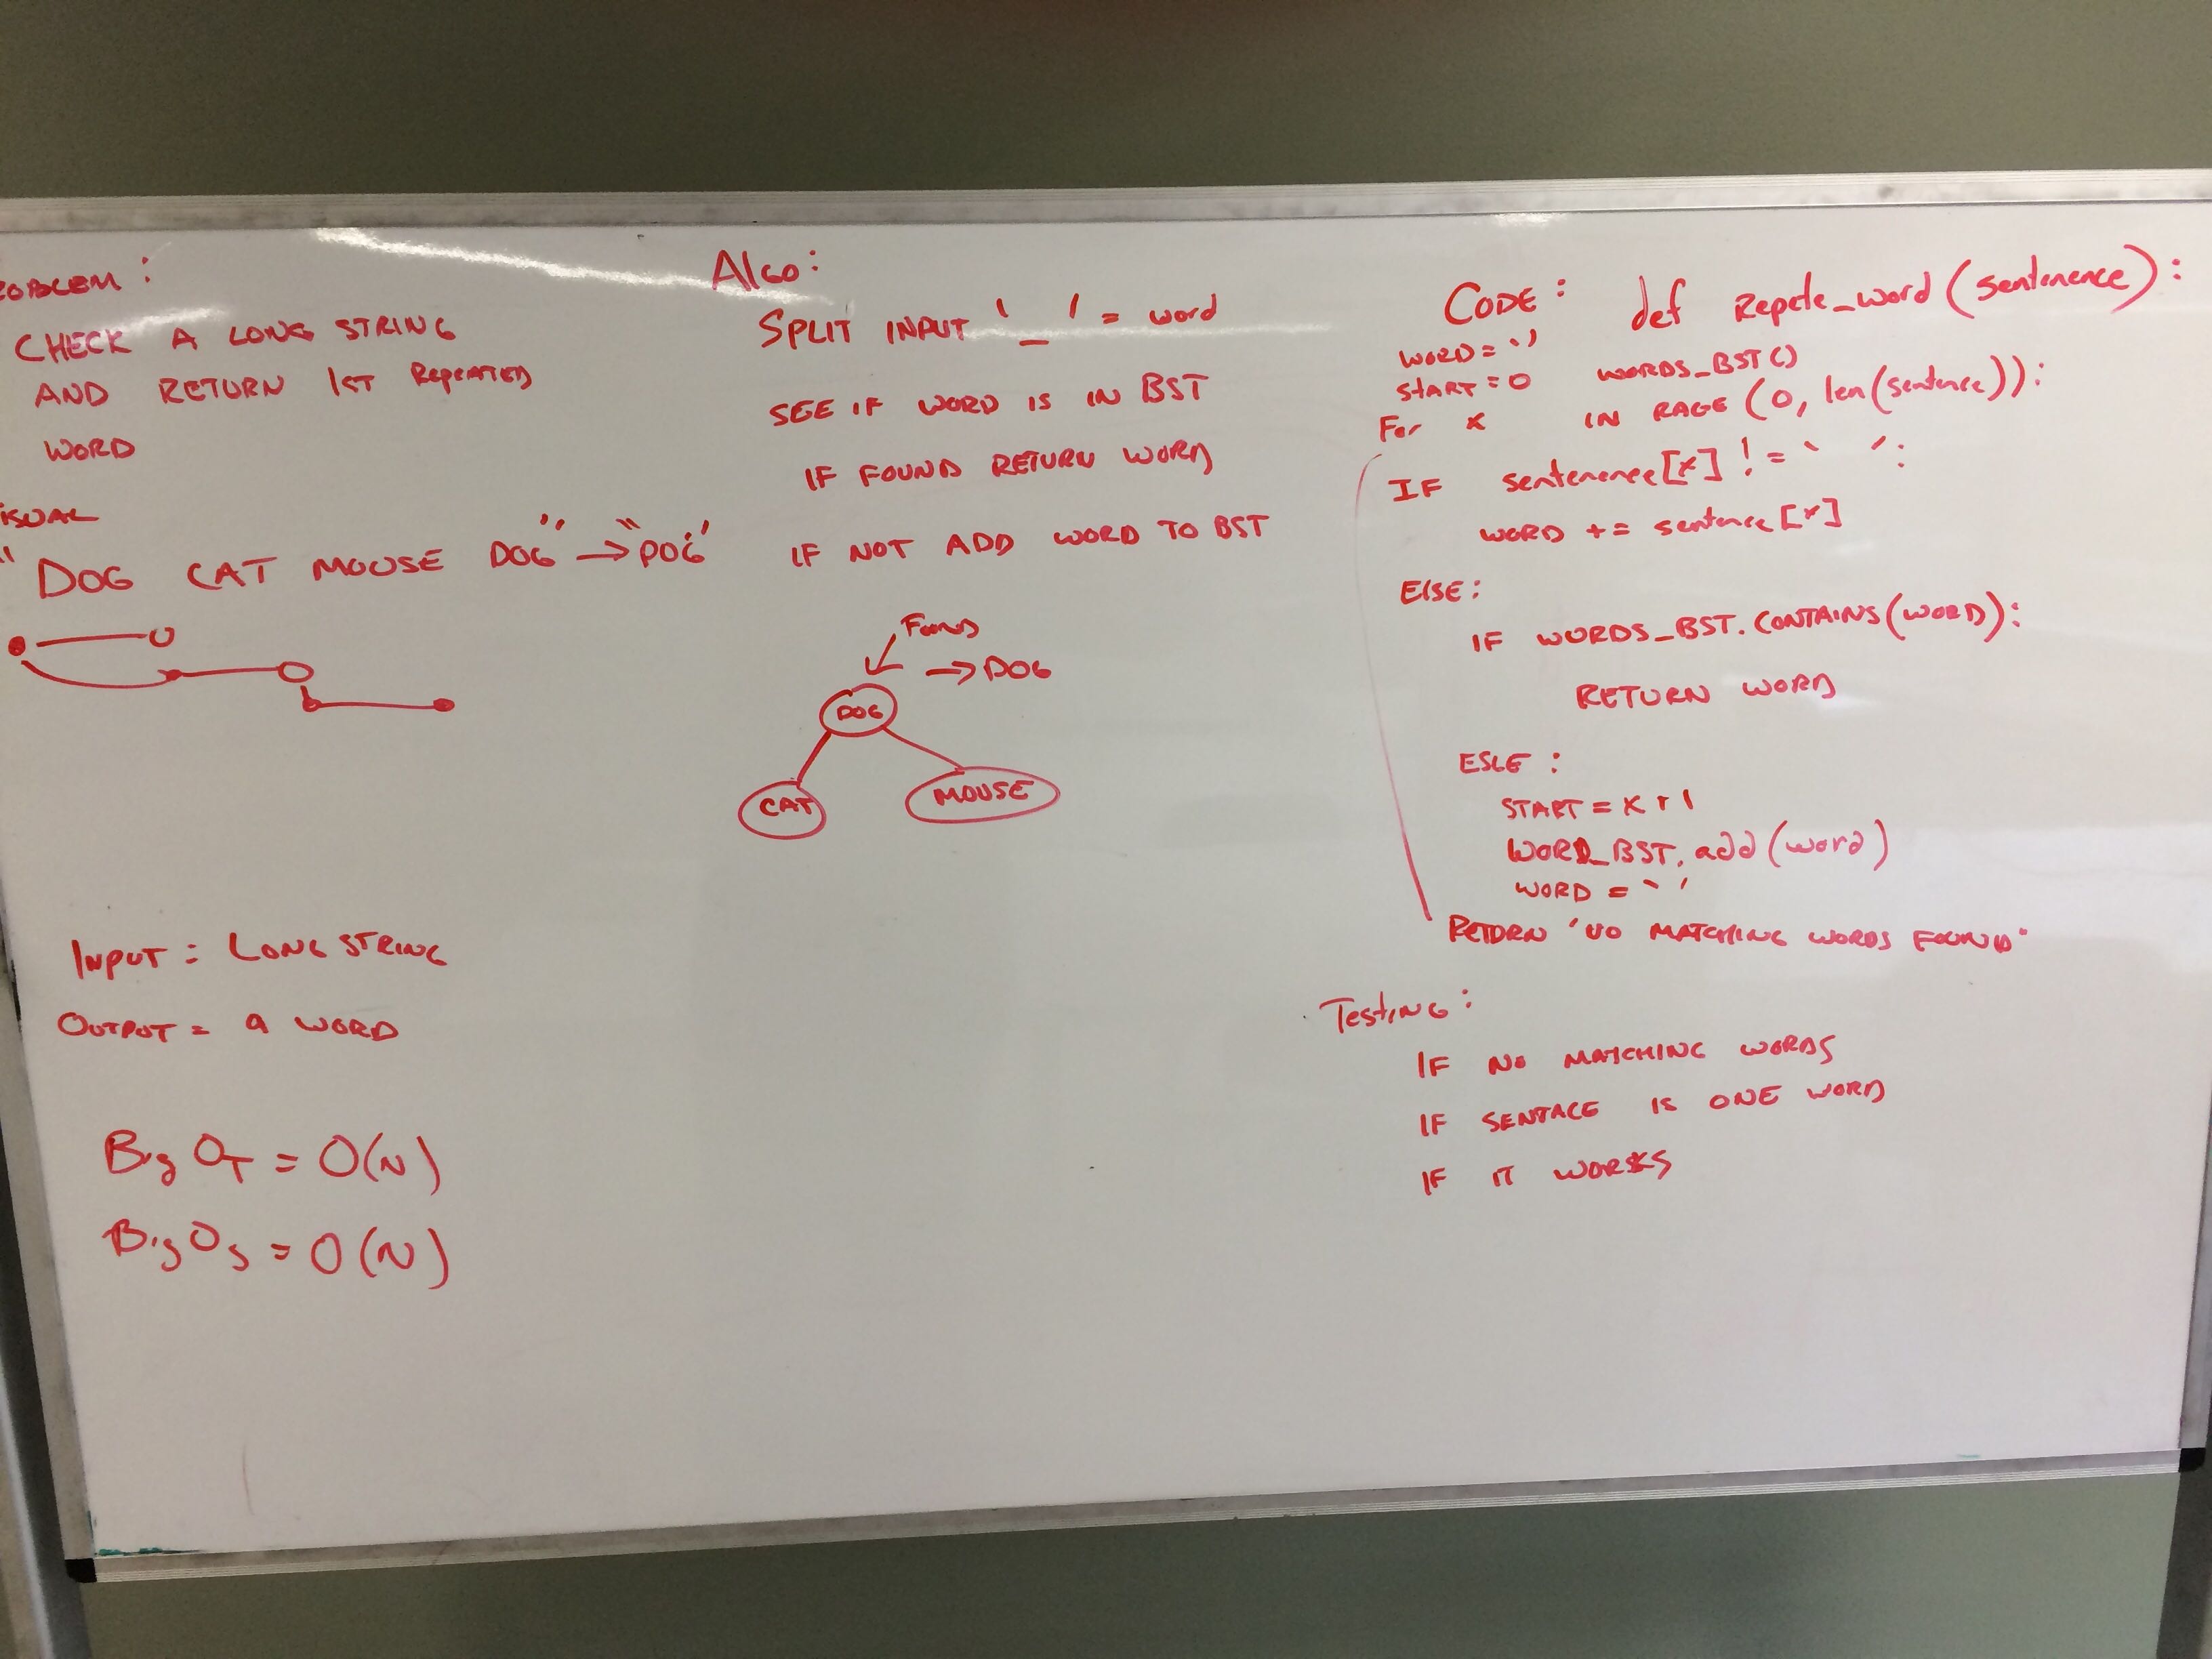 ROBLEM :
CHECK A LONG STRING
AND RETURN 1ST REPEATED
WORD
ISUAL
"DOG CAT MOUSE DOG" → "DOG"
INPUT = LONG STRING
OUTPUT = a WORD
Big OT = O(N)
Big OS = O(N)
Algo:
SPLIT INPUT '_' = word
SEE IF WORD IS IN BST
IF FOUND RETURN WORD
IF NOT ADD WORD TO BST
FOUND
→ DOG
DOG
CAT MOUSE
CODE: def Repete_word(sentenence):
WORD = ''
START = 0 WORDS_BST()
For x IN RAGE (0, len(sentence)):
IF sentenence[x] != ' ':
WORD += sentence[x]
ElSE:
IF WORDS_BST.CONTAINS(WORD):
RETURN WORD
ESLE :
START = x + 1
WORD_BST.add(word)
WORD = ' '
RETURN 'NO MATCHING WORDS FOUND'
Testing:
IF NO MATCHING WORDS
IF SENTACE IS ONE WORD
IF IT WORKS